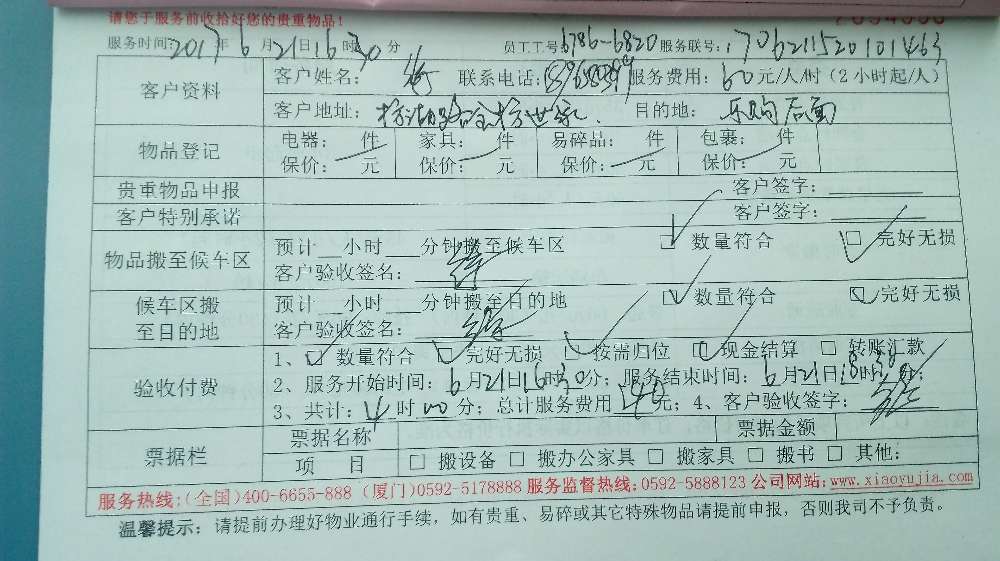 请您于服务前收拾好您的贵重物品！
服务时间：2017年6月21日16时30分 员工工号6786-6820 服务联号：1706211520101463
客户资料 客户姓名： 联系电话： 服务费用：60元/人/时（2小时起/人）
客户地址： 目的地：乐购后面
物品登记 电器： 件 家具： 件 易碎品： 件 包裹： 件
保价： 元 保价： 元 保价： 元 保价： 元
贵重物品申报 客户签字：
客户特别承诺 客户签字：
物品搬至候车区 预计 小时 分钟搬至候车区 数量符合 完好无损
客户验收签名：
候车区搬至目的地 预计 小时 分钟搬至目的地 数量符合 完好无损
客户验收签名：
验收付费 1、 数量符合 完好无损 按需归位 现金结算 转账汇款
2、服务开始时间：6月21日16时30分；服务结束时间：6月21日18时30分；
3、共计：4时00分；总计服务费用 元；4、客户验收签字：
票据栏 票据名称 票据金额
项目 搬设备 搬办公家具 搬家具 搬书 其他：
服务热线：(全国)400-6655-888 (厦门)0592-5178888 服务监督热线：0592-5888123 公司网站：www.xiaoyujia.com
温馨提示：请提前办理好物业通行手续，如有贵重、易碎或其它特殊物品请提前申报，否则我司不予负责。